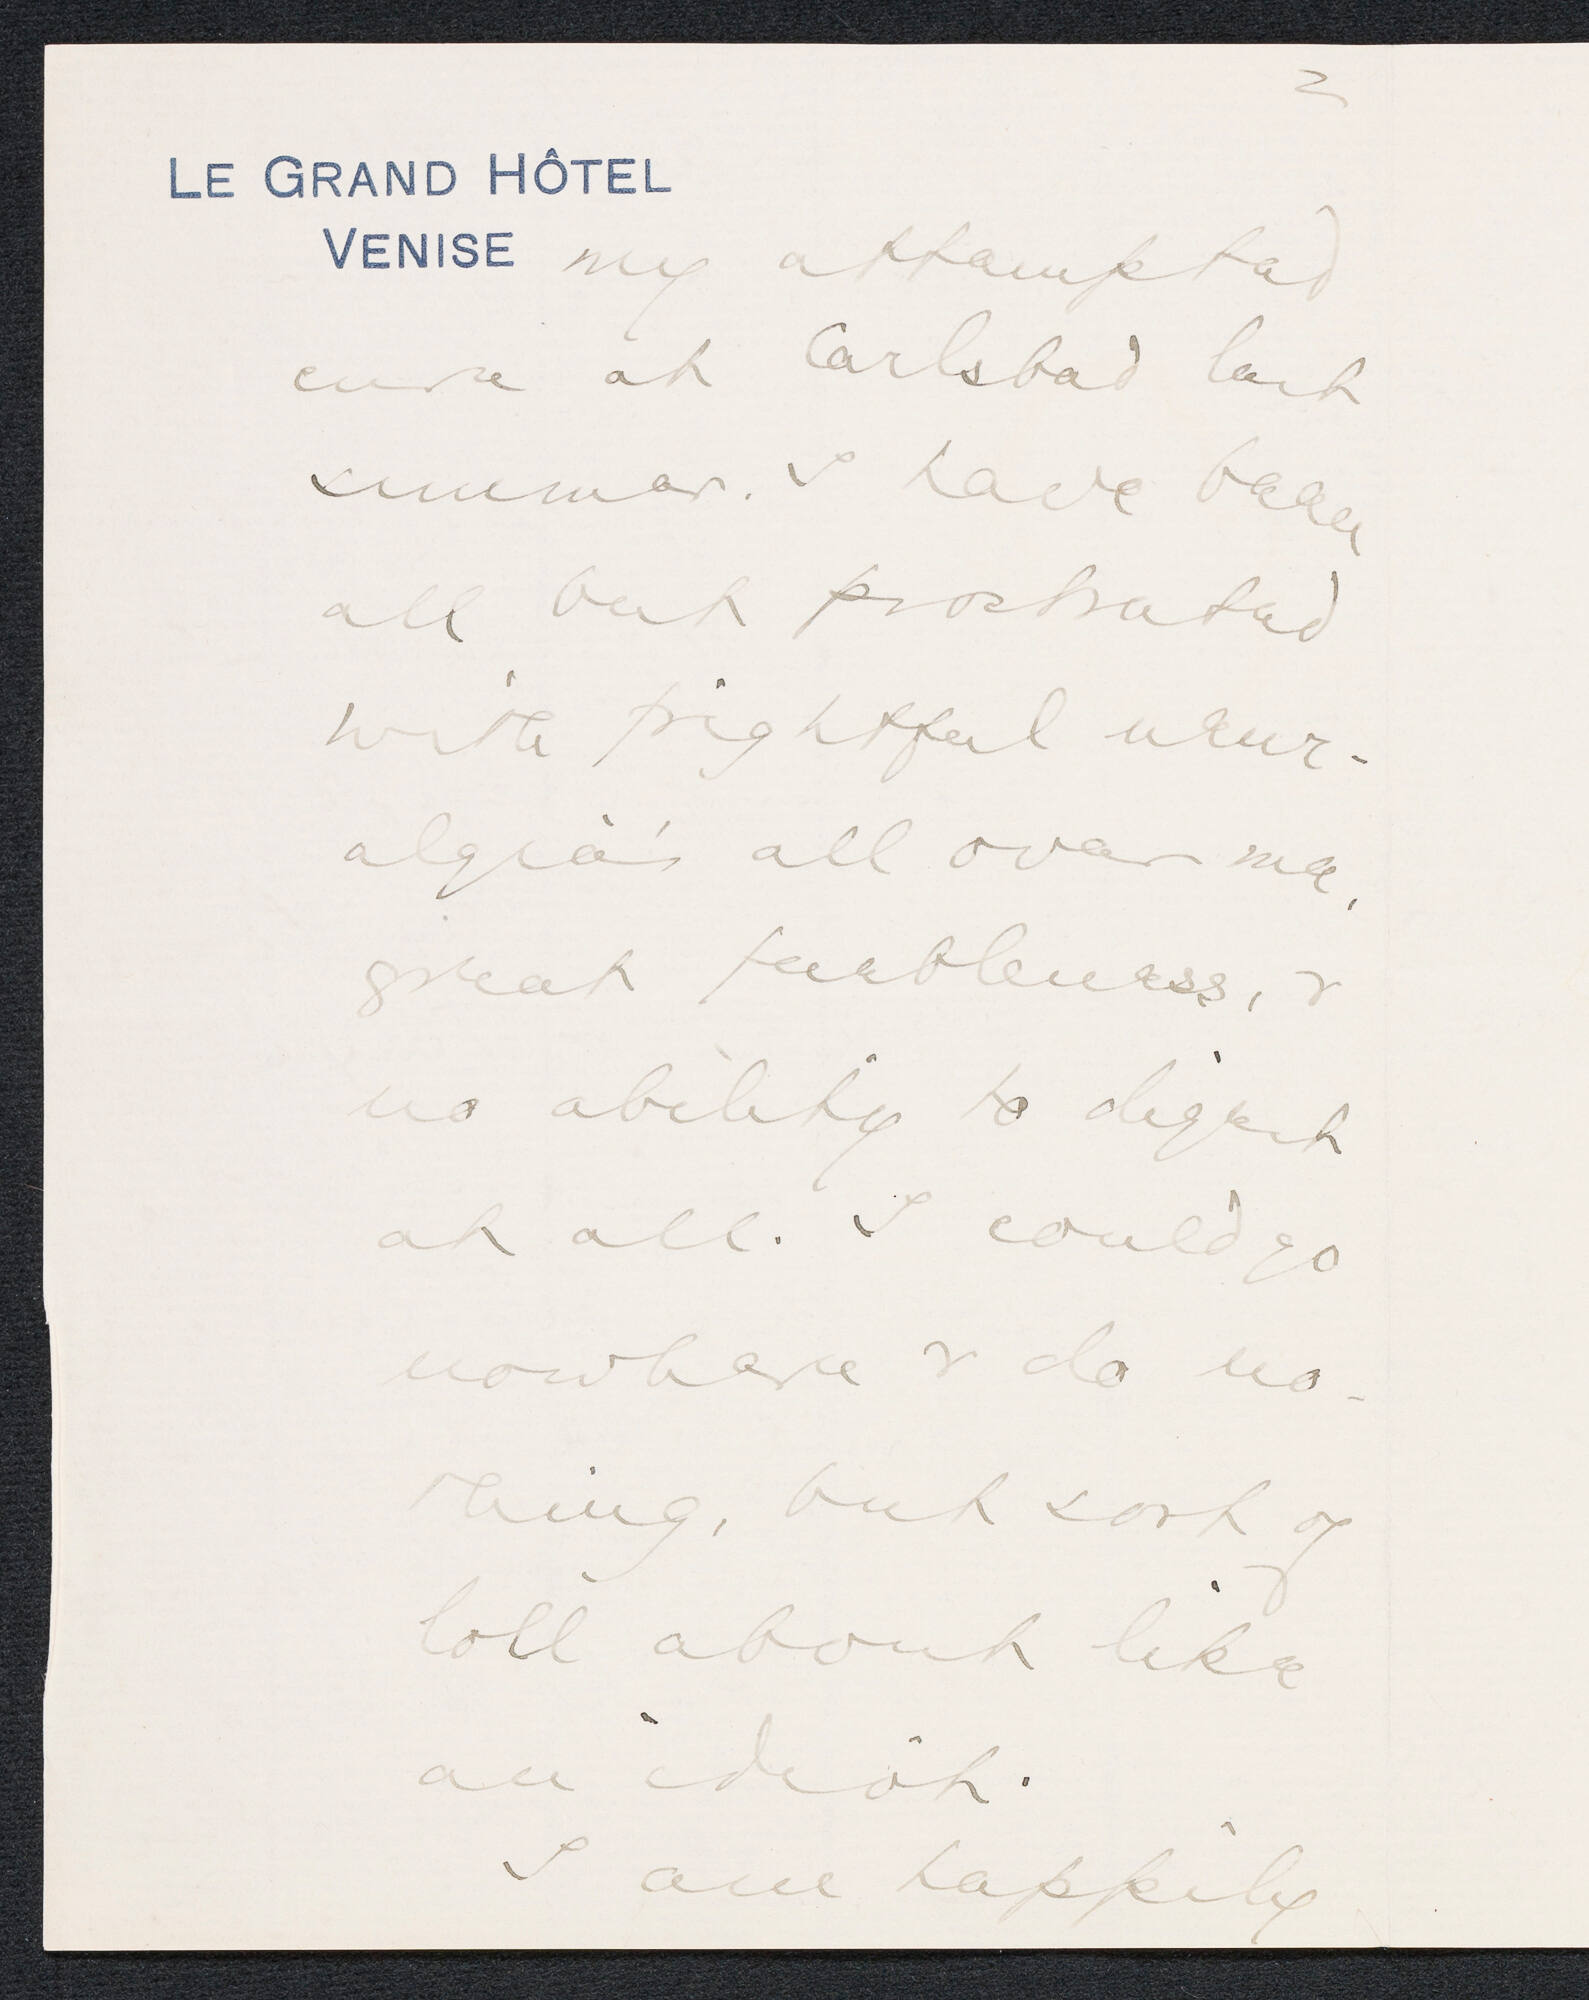 2
LE GRAND HÔTEL
VENISE
my attempted
cure at Carlsbad last
summer. I have been
all but prostrated
with frightful neur-
algia's all over me,
great feebleness, &
no ability to digest
at all. I could go
nowhere & do no-
thing, but sort of
loll about like
an idiot.
I am happily